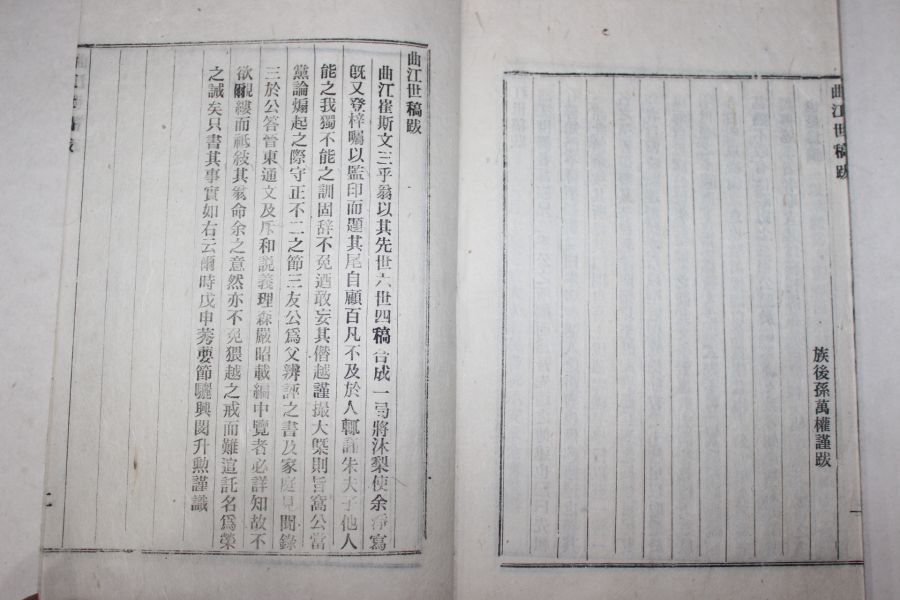 曲江世稿跋
族後孫萬權謹跋
曲江世稿跋
曲江崔斯文三乎翁以其先世六世四稿合成一弓將沐梨使余淨寫
旣又登梓囑以監印而題其尾自顧百凡不及於人輒誦朱夫子他人
能之我獨不能之訓固辞不免迺敢妄其僭越謹撮大槩則旨窩公當
黨論煽起之際守正不二之節三友公爲父辨誣之書及家庭見聞錄
三於公答晉東通文及斥和說義理森嚴昭載編中覽者必詳知故不
欲覶縷而祗敍其翁命余之意然亦不免猥越之戒而難逭託名爲榮
之誠矣只書其事實如右云爾時戊申蒡葽節驪興閔升勲謹識
二